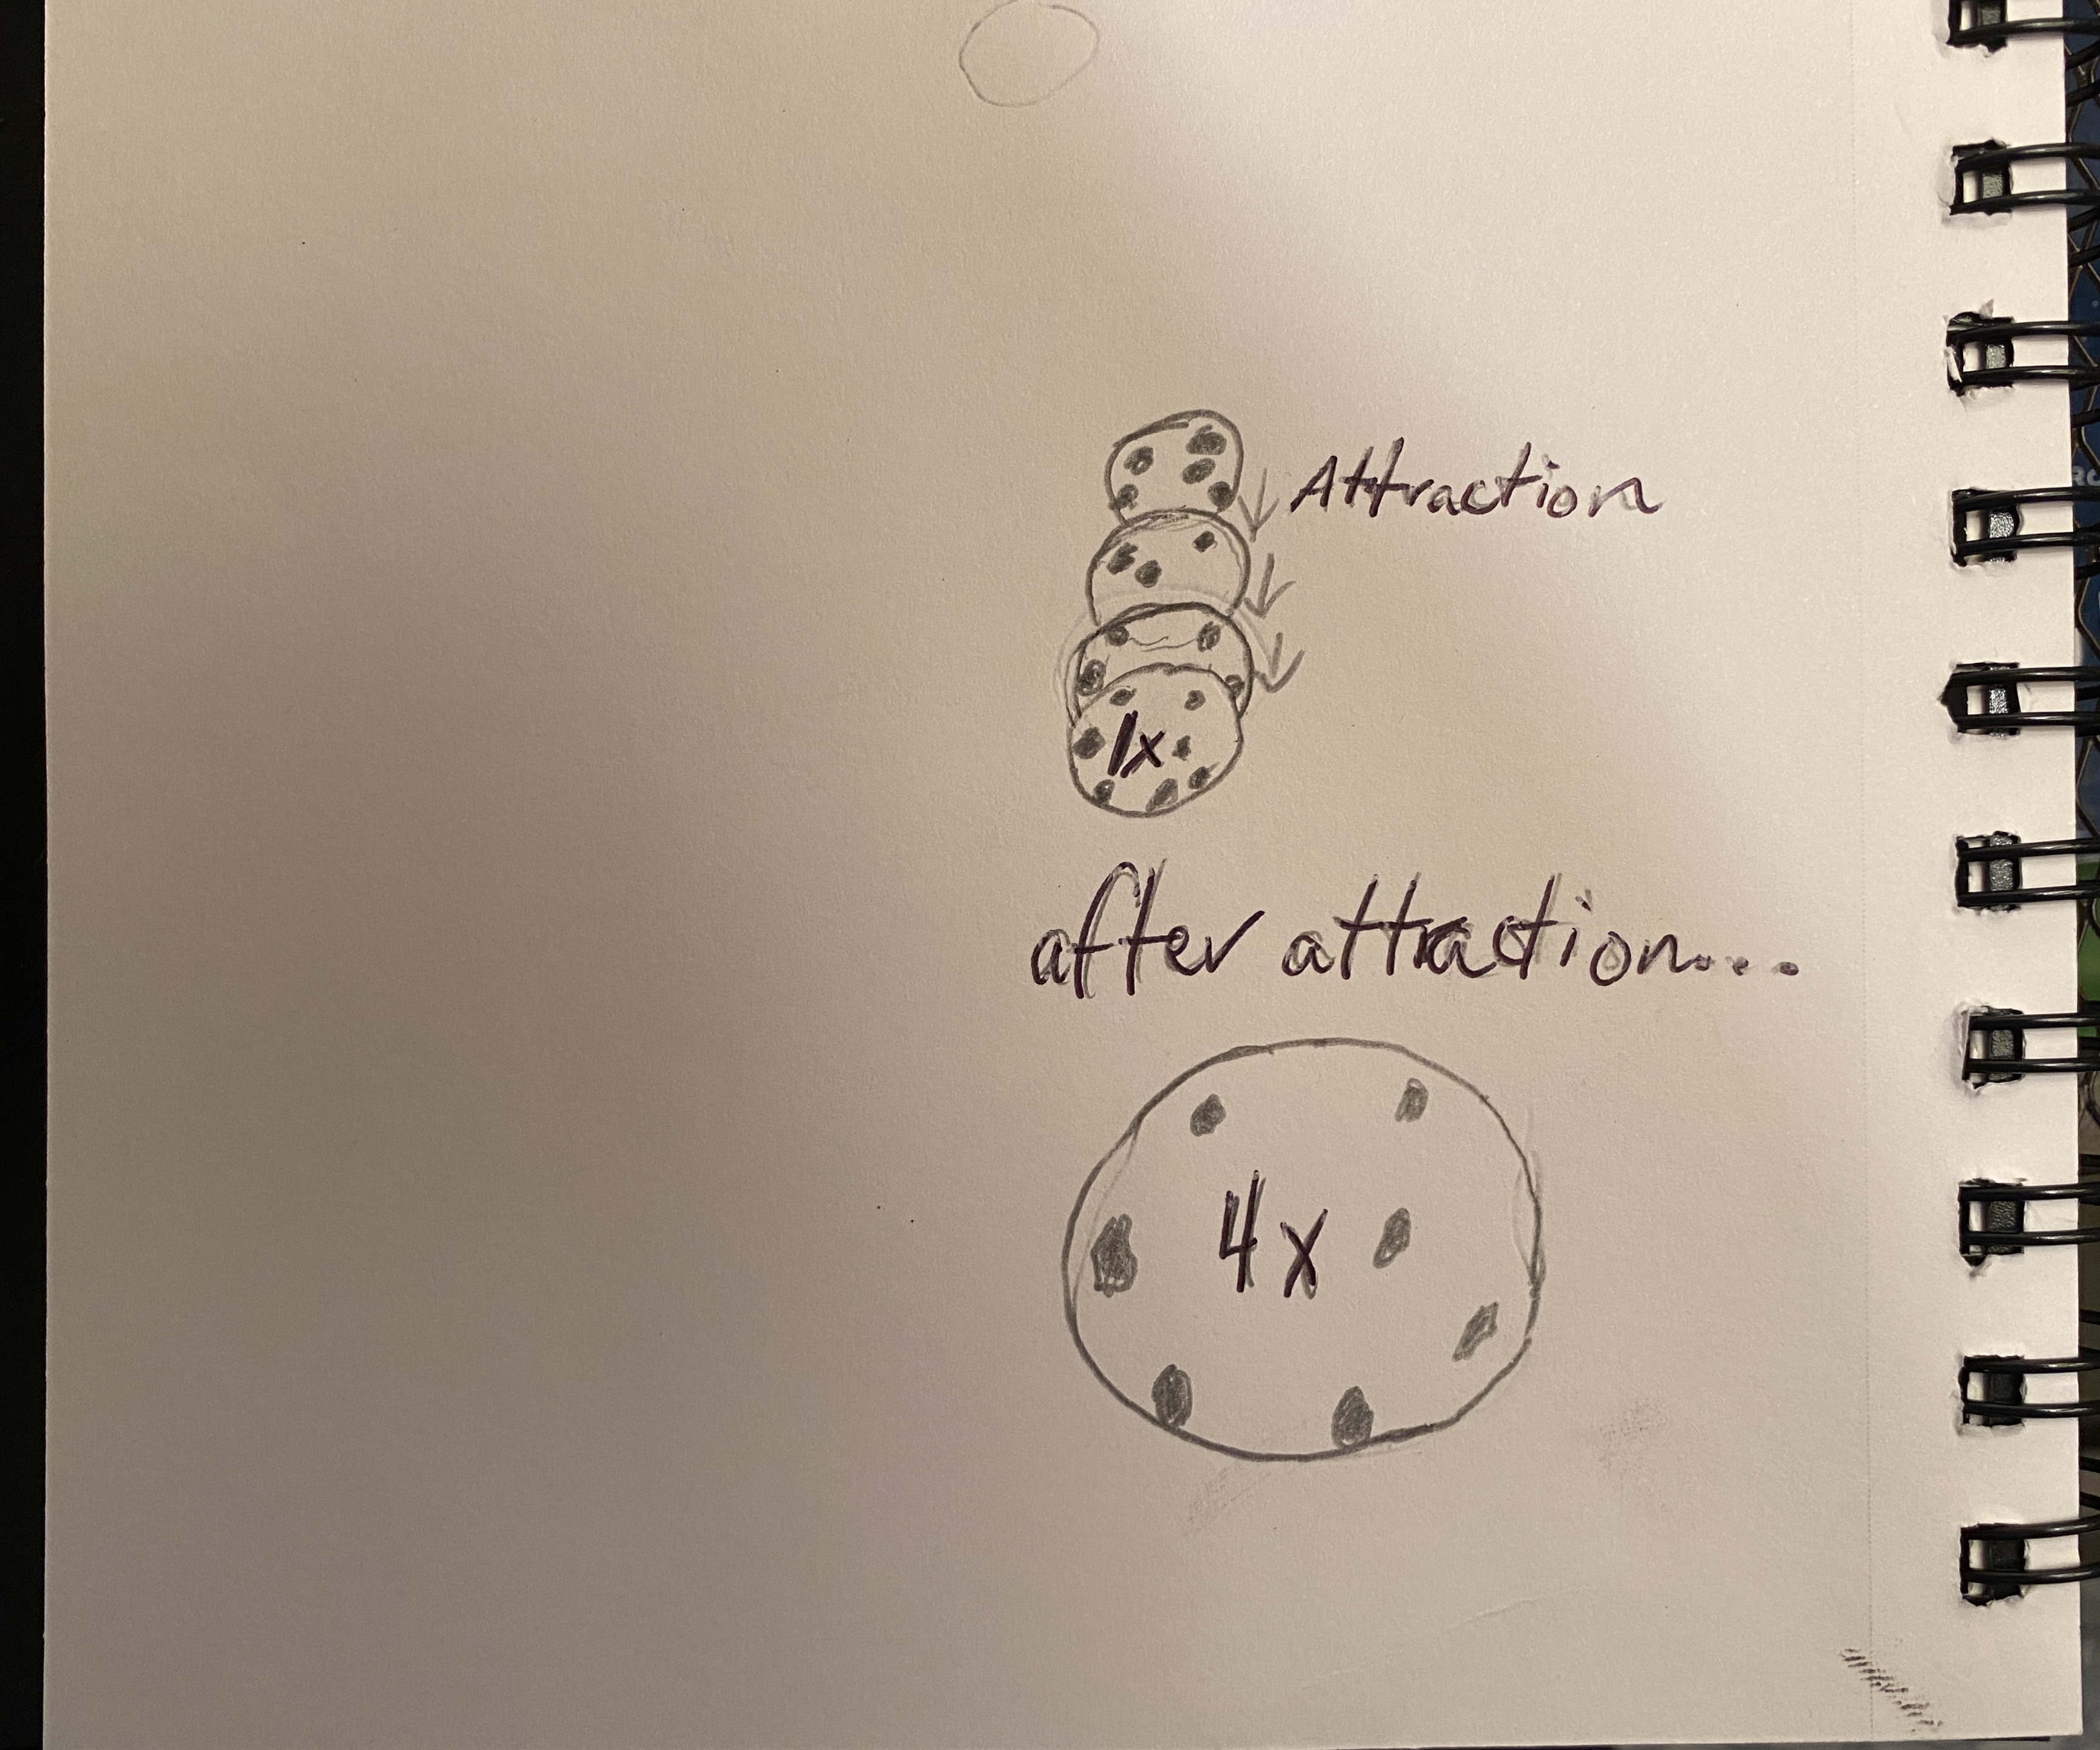 Attraction
1x
after attraction...
4x